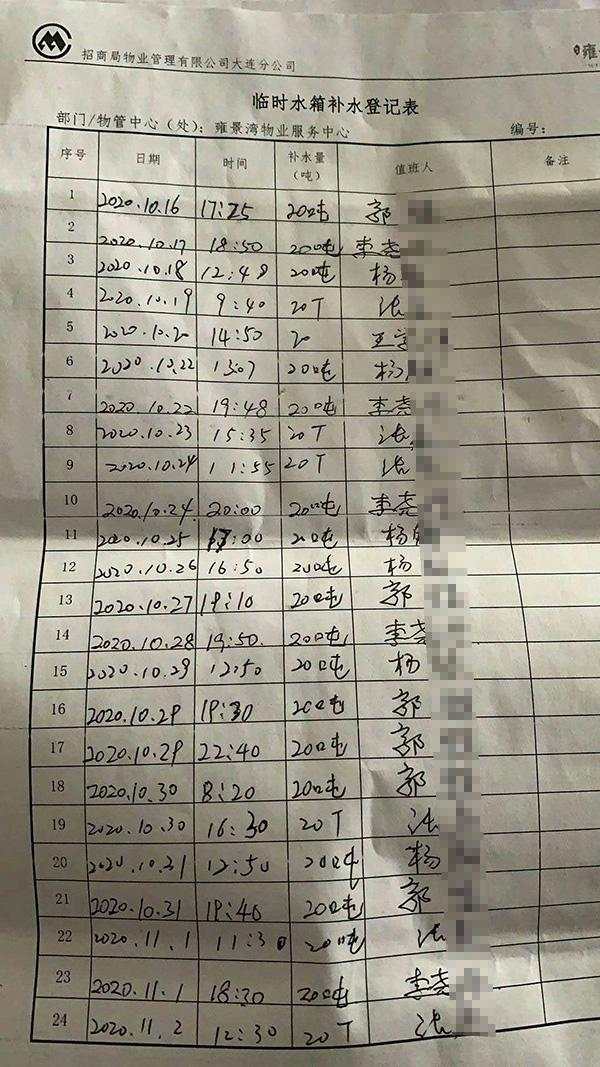 招商局物业管理有限公司大连分公司
雍
临时水箱补水登记表
部门/物管中心（处）：雍景湾物业服务中心 编号：
序号 日期 时间 补水量（吨） 值班人 备注
1 2020.10.16 17:25 20吨 郭
2 2020.10.17 18:50 20吨 李尧
3 2020.10.18 12:48 20吨 杨
4 2020.10.19 9:40 20T 张
5 2020.10.20 14:50 20 王
6 2020.10.22 1307 20吨 杨
7 2020.10.22 19:48 20吨 李尧
8 2020.10.23 15:35 20T 张
9 2020.10.24 11:55 20T 张
10 2020.10.24 20:00 20吨 李尧
11 2020.10.25 :00 20吨 杨
12 2020.10.26 16:50 20吨 杨
13 2020.10.27 19:10 20吨 郭
14 2020.10.28 19:50 20吨 李尧
15 2020.10.29 12:50 20吨 杨
16 2020.10.29 19:30 20吨 郭
17 2020.10.29 22:40 20吨 郭
18 2020.10.30 8:20 20吨 郭
19 2020.10.30 16:30 20T 张
20 2020.10.31 12:50 20吨 杨
21 2020.10.31 19:40 20吨 郭
22 2020.11.1 11:30 20吨 张
23 2020.11.1 18:30 20吨 李尧
24 2020.11.2 12:30 20T 张